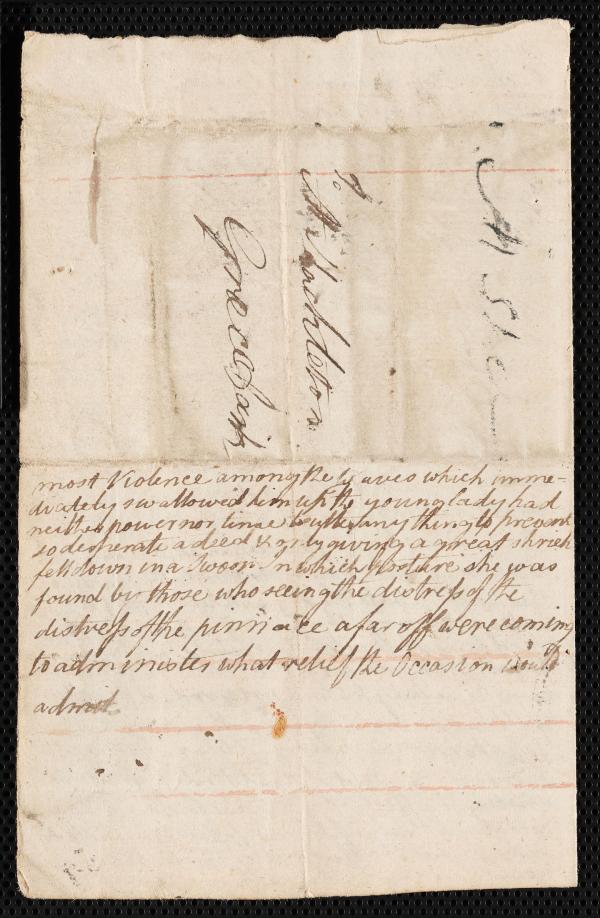 To
Grace
most Violence among the Waves which imme-
diately swallowed him up the young lady had
neither power nor time to utter any thing to prevent
so desperate a deed & only giving a great shriek
fell down in a Swoon In which posture she was
found by those who seeing the distress of the
distress of the pinnace afar off were coming
to administer what relief the Occasion would
admit